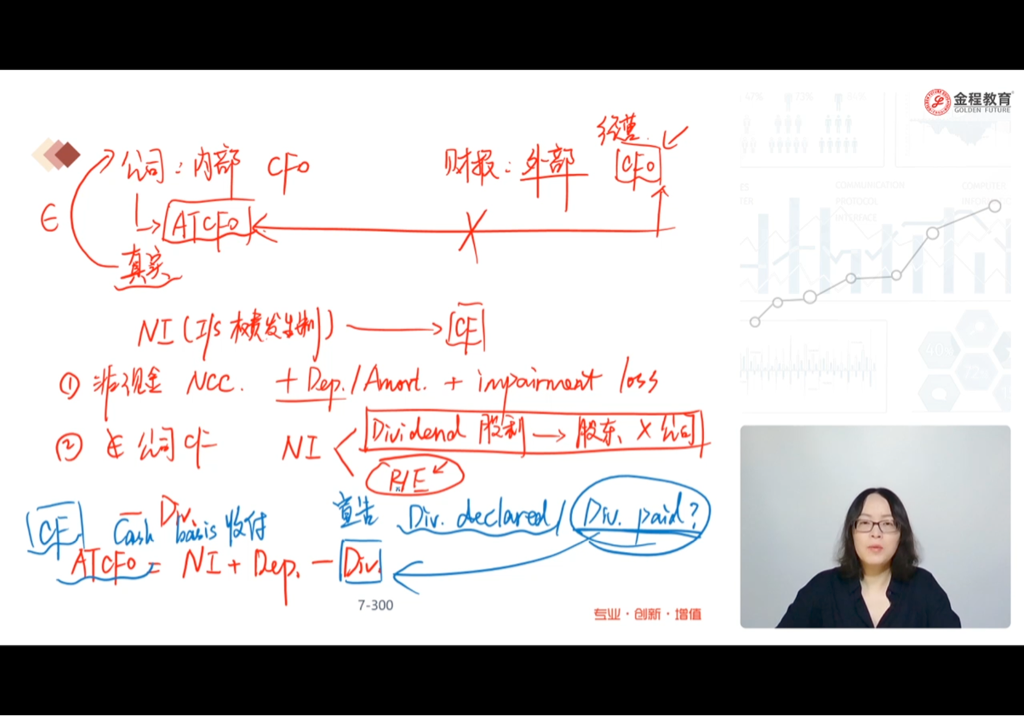 金程教育
GOLDEN FUTURE
公司：内部 CFO
财报：外部 经营 CFO
ATCFO
真实
NI (I/S 权责发生制) → CF
① 非现金 NCC. + Dep./Amort. + impairment loss
② 公司 CF NI Dividend 股利 → 股东、X 公司
R/E
CF Cash basis 收付 Div
宣告 Div. declared / Div. paid?
ATCFO = NI + Dep. - Div.
7-300
专业·创新·增值